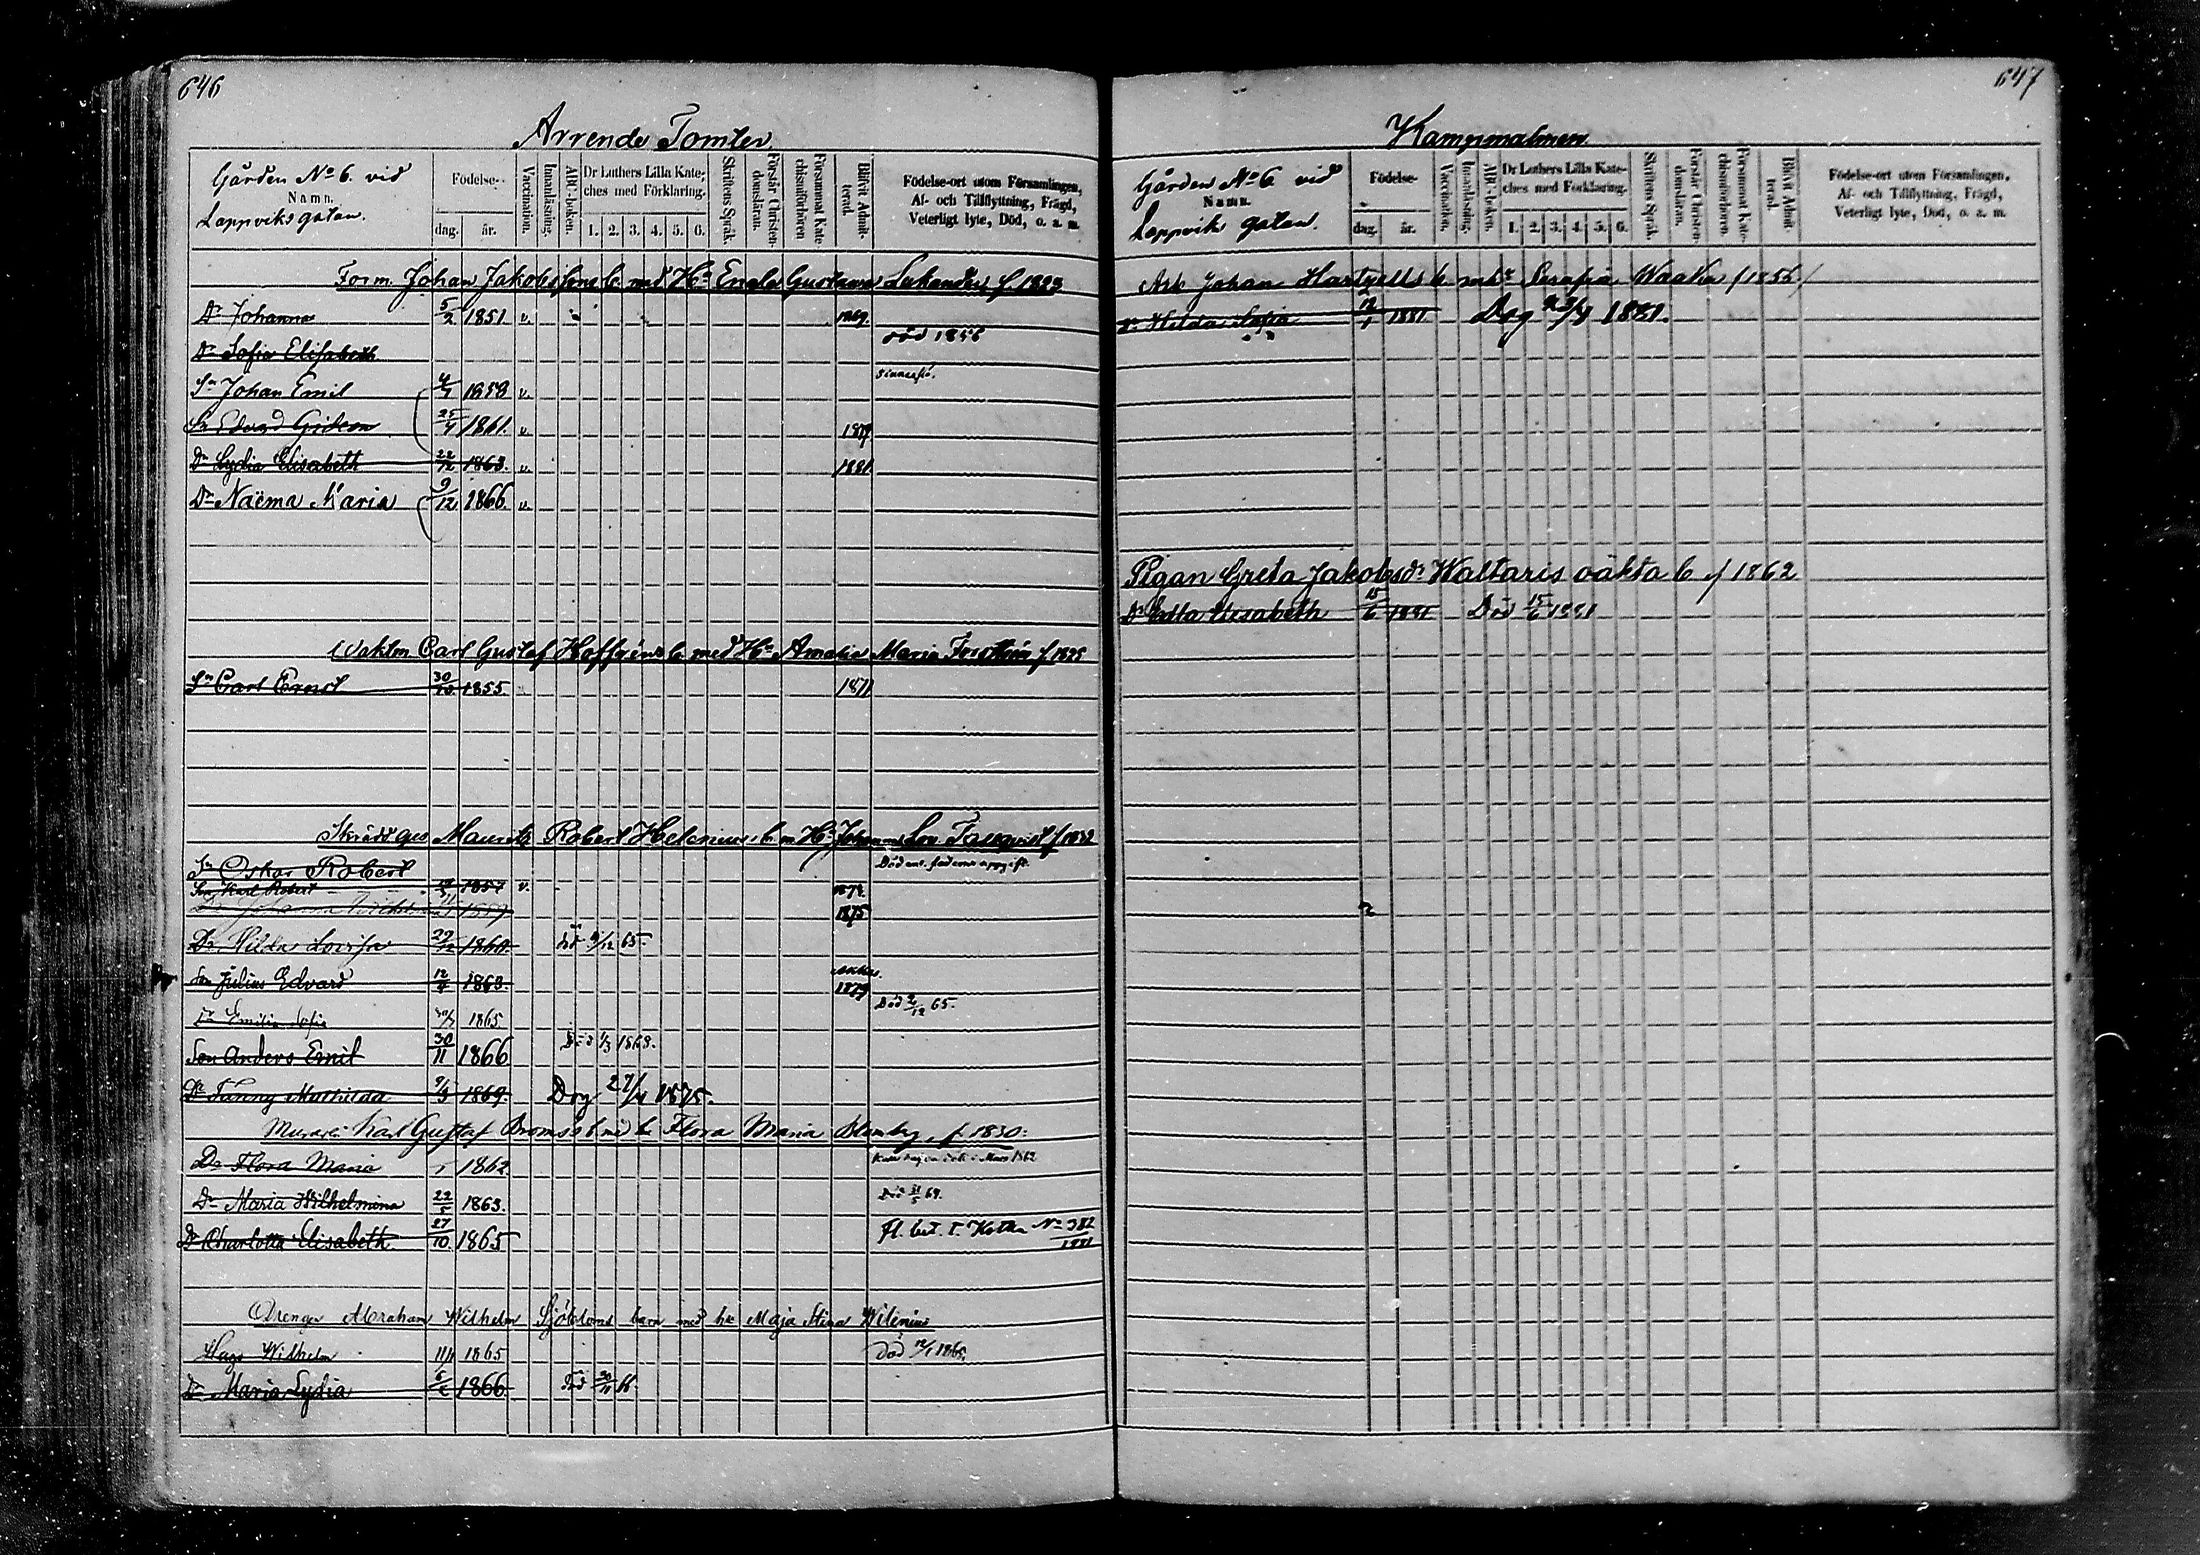 646
Arrende Tomter
Gården No 6. vid
Namn.
Lappviksgatan.
Födelse-
dag. år.
Vaccination.
Innanläsning.
ABC-boken.
Dr Luthers Lilla Kate-
ches med Förklaring.
1. 2. 3. 4. 5. 6.
Skriftens Språk.
Förstår Christen-
domsläran.
Försummat Kate-
chismiförhören
Blifvit Admit-
terad.
Födelse-ort utom Församlingen,
Af- och Tillflyttning, Frägd,
Veterligt lyte, Död, o. a. m.
Form. Johan Jakobssons b. med Ha Gustava f.
Dr Johanna 5/2 1851 v. 1869.
Dr Sofia Elisabeth död 1856
Sn Johan Emil 1858 v. sinnessl.
Sn Edvard Gideon 25/4 1861. v. 1879
Dr Lydia Elisabeth 22/12 1863. v. 1881
Dr Naëma Maria 9/12 1866. v.
Vaktm. Carl Gustaf Hoffréns b. med Ha Amalia Maria f. 1825
Sn Carl Ernst 30/10 1855 1871
Mauritz Robert Helenius b. m. Ha Johanna Lov. f. 1832
Sn Oskar Robert Död enl. fadrens uppgift.
Son Karl Robert 1857 v. 1873.
Dr Johanna Wilhelmina 1859 1875
Dr Hilda Lovisa 29/12 1860. död 9/12 65.
Son Julius Edvard 12/4 1863. 1879
Dr Emilia Sofia 1865 Död 2/12 65.
Son Anders Emil 30/11 1866 Död 1/3 1868.
Dr Fanny Mathilda 9/3 1869. Dog 27/4 1875.
Karl Gustaf b med h. Flora Maria f. 1830.
Dr Flora Maria 1862. Mars 1862
Dr Maria Wilhelmina 22/5 1863. Död 31/5 69.
Dr Charlotta Elisabeth 27/10. 1865 Fl. bet. t. No 382/1881
Drengen Abraham Wilhelm Sjöbloms barn med hu Maja Stina Wilenius
Wilhelm 11/1 1865 Död 12/1 1865.
Dr Maria Lydia 1866 Död 30/11 66.
647
Kampmalmen
Gården No 6 vid
Namn.
Lappviks gatan.
Födelse-
dag. år.
Vaccination.
Innanläsning.
ABC-boken.
Dr Luthers Lilla Kate-
ches med Förklaring.
1. 2. 3. 4. 5. 6.
Skriftens Språk.
Förstår Christen-
domsläran.
Försummat Kate-
chismiförhören.
Blifvit Admit-
terad.
Födelse-ort utom Församlingen,
Af- och Tillflyttning, Frägd,
Veterligt lyte, Död, o. a. m.
Arb Johan Hartvalls b. m hu Serafia f 1856
Dr Hilda Sofia 12/1 1881 Dog 1881.
Pigan Greta Jakobsdr Waltaris oäkta b f 1862
Dr Elisabeth 15/6 1881 Död 15/6 1881